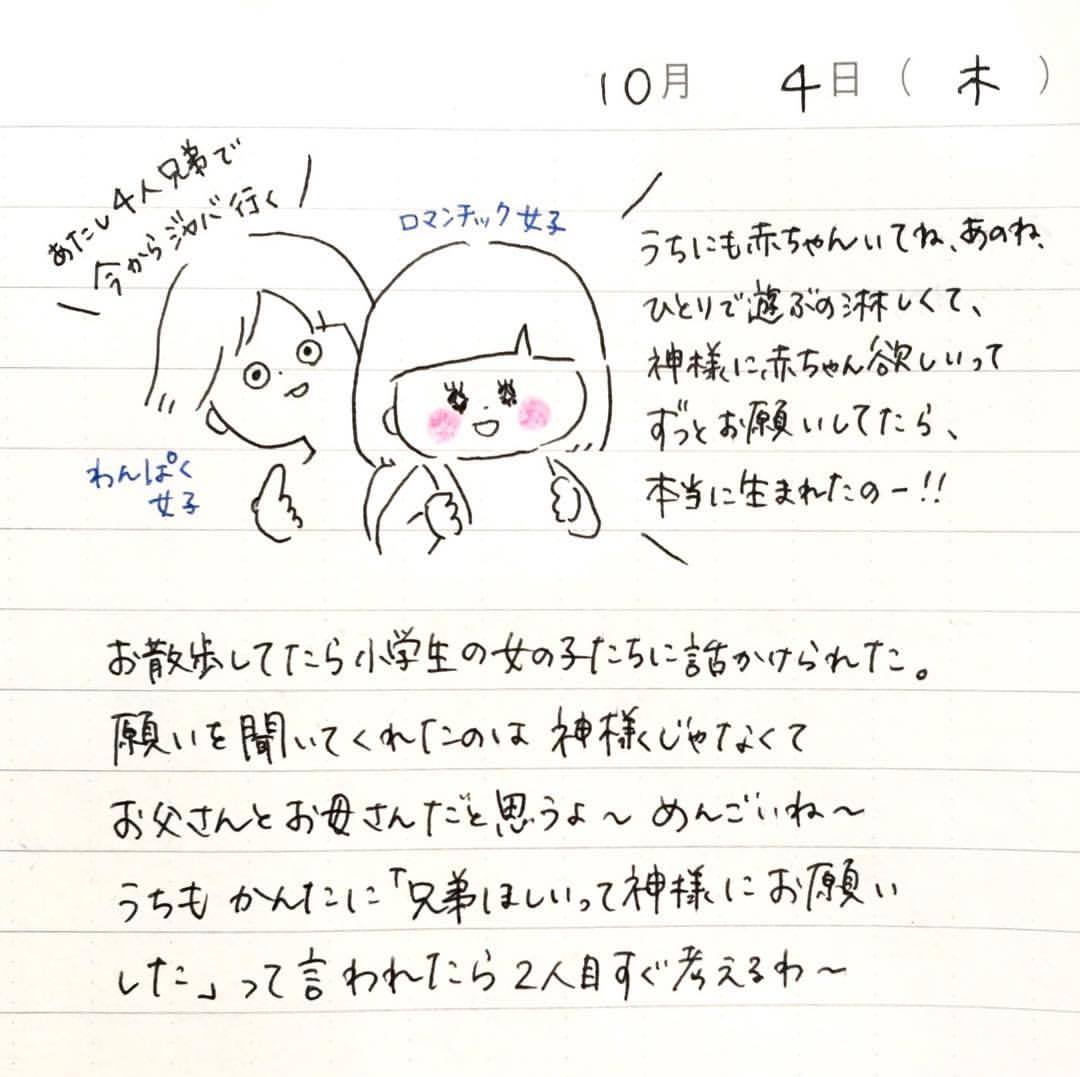 10月 4日(木)
あたし4人兄弟で
今からジャバ行く
ロマンチック女子
わんぱく
女子
うちにも赤ちゃんいてね、あのね、
ひとりで遊ぶの淋しくて、
神様に赤ちゃん欲しいって
ずっとお願いしてたら、
本当に生まれたのー!!
お散歩してたら小学生の女の子たちに話かけられた。
願いを聞いてくれたのは神様じゃなくて
お父さんとお母さんだと思うよ〜めんごいね〜
うちもかんたに「兄弟ほしいって神様にお願い
した」って言われたら2人目すぐ考えるわ〜